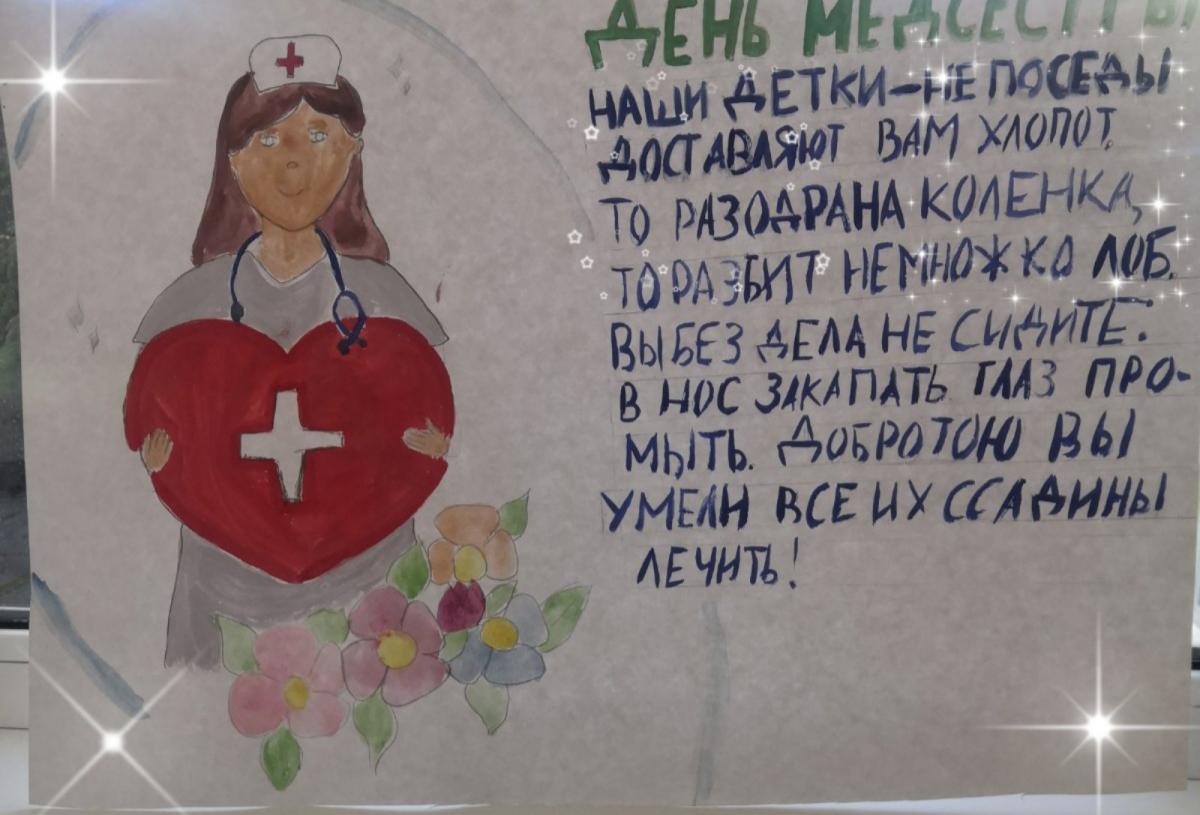 ДЕНЬ МЕДСЕСТРЫ
НАШИ ДЕТКИ-НЕ ПОСЕДЫ
ДОСТАВЛЯЮТ ВАМ ХЛОПОТ.
ТО РАЗОДРАНА КОЛЕНКА,
ТО РАЗБИТ НЕМНОЖКО ЛОБ.
ВЫ БЕЗ ДЕЛА НЕ СИДИТЕ.
В НОС ЗАКАПАТЬ ГЛАЗ ПРО-
МЫТЬ. ДОБРОТОЮ ВЫ
УМЕЛИ ВСЕ ИХ ССАДИНЫ
ЛЕЧИТЬ!